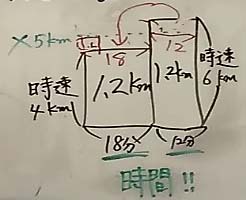 ×5km
18
12
時速
4km
1.2km
1.2km
時速
6km
18分
12分
時間!!